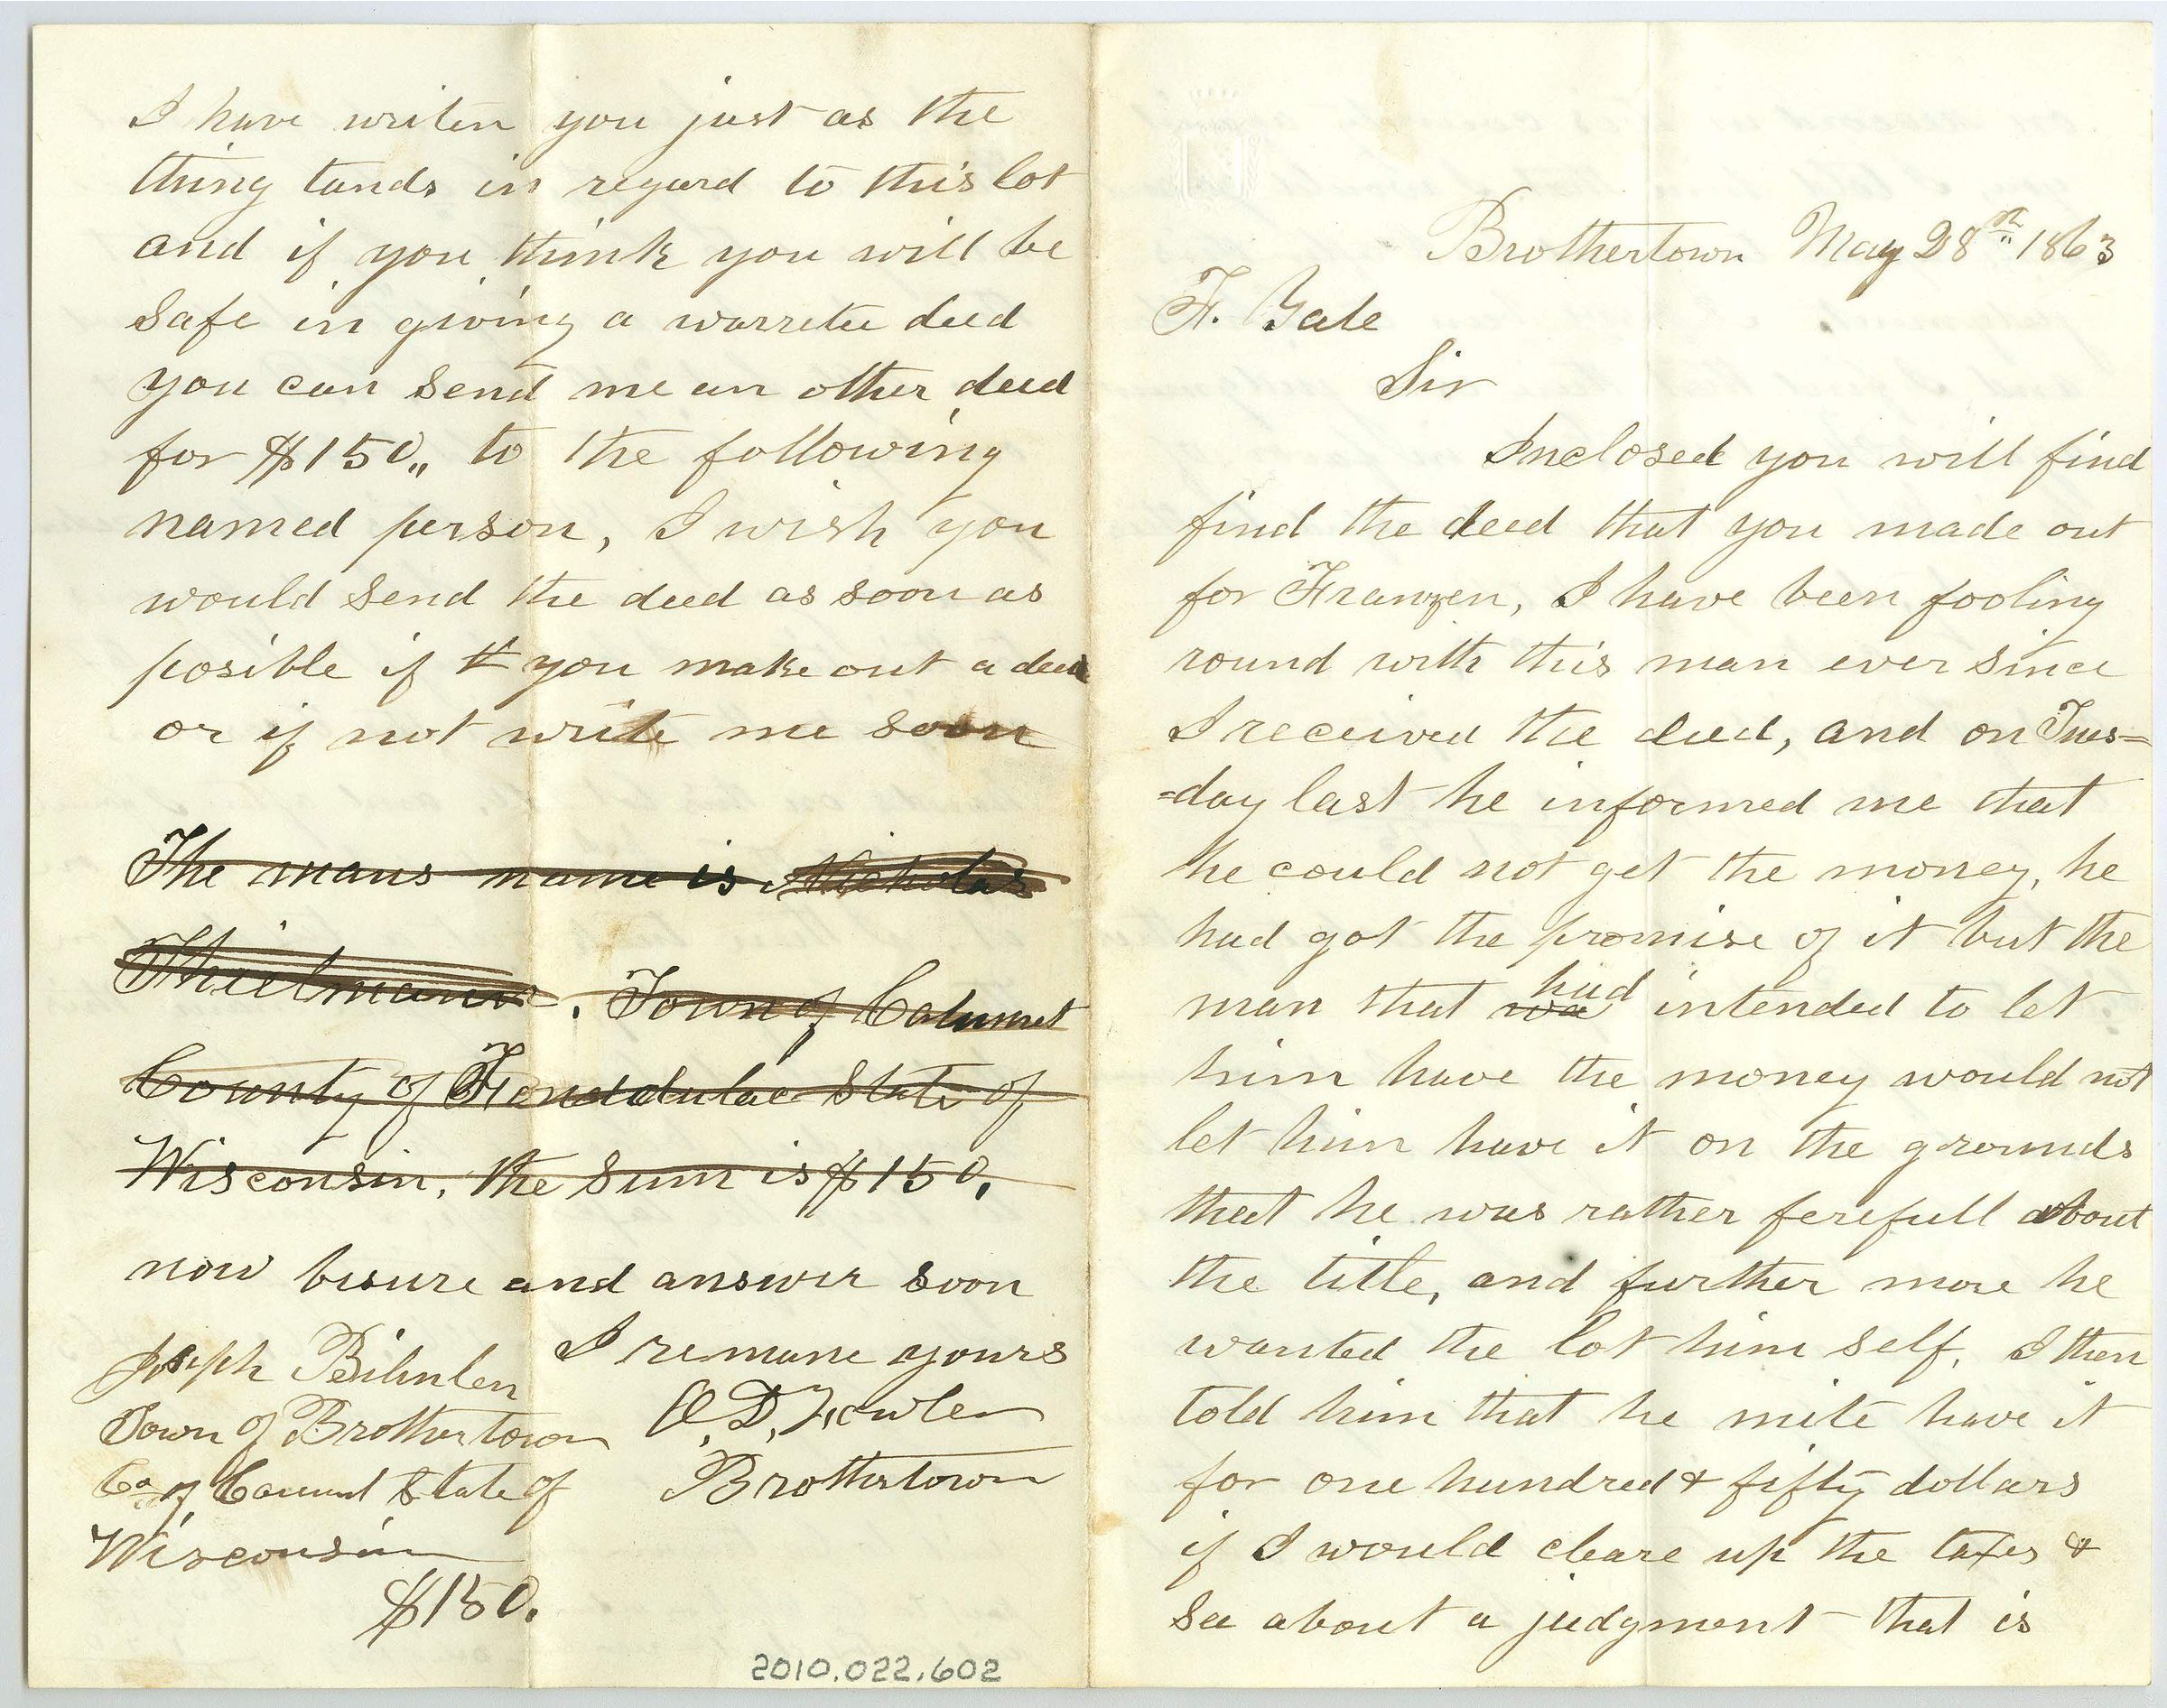 Brothertown May 28th 1863
F. Gale
Sir
Inclosed you will find
find the deed that you made out
for Franzen, I have been fooling
round with this man ever since
I received the deed, and on Tues=
=day last he informed me that
he could not get the money, he
had got the promise of it but the
man that wa had intended to let
him have the money would not
let him have it on the grounds
that he was rather ferefull about
the title, and further more he
wanted the lot him self, I then
told him that he mite have it
for one hundred & fifty dollars
if I would cleare up the taxes &
See about a judgment that is
I have writen you just as the
thing tands in regard to this lot
and if you think you will be
Safe in giving a warretee deed
you can Send me an other deed
for $150,, to the following
named person, I wish you
would Send the deed as soon as
posible if you make out a deed
or if not write me soon
The mans name is Nicholas
Thielmann. Town of Calumet
County of Fonddulac State of
Wisconsin, the Sum is $150,
now besure and answer soon
I remane yours
O. D. Fowler
Brothertown
Joseph Bihnlen
Town of Brothertown
Co of State of
Wisconsin
$150.
2010.022.602